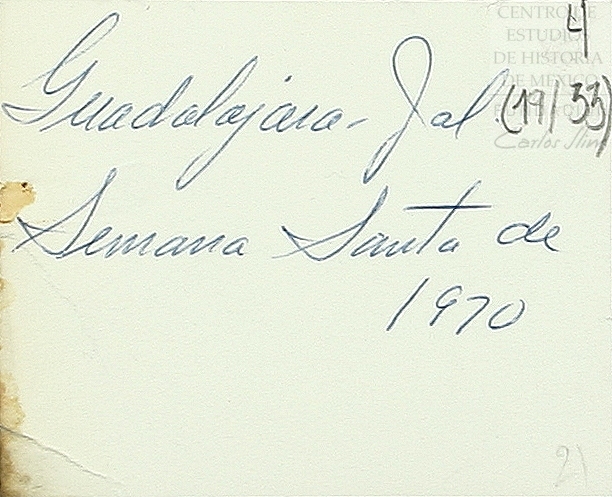 CENTRO DE
ESTUDIOS
DE HISTORIA
DE MEXICO
Carlos Slim
4
Guadalajara - Jal (19/33)
Semana Santa de
1970
21